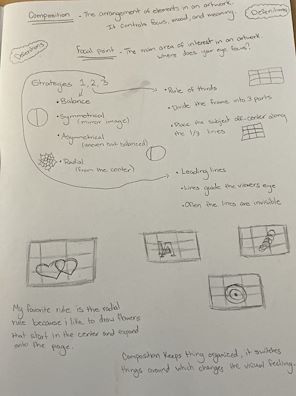 Composition - The arrangement of elements in an artwork.
It controls focus, mood, and meaning.
Definitions
Focal point - The main area of interest in an artwork.
where does your eye focus?
Strategies 1, 2, 3
• Balance
• Symmetrical
(mirror image)
• Asymmetrical
(uneven but balanced)
• Radial
(from the center)
• Rule of thirds
• Divide the frame into 3 parts
• Place the subject off-center along
the 1/3 lines
• Leading lines
• Lines guide the viewers eye
• Often the lines are invisible
My favorite rule is the radial
rule because i like to draw flowers
that start in the center and expand
onto the page.
Composition keeps thing organized, it switches
things around which changes the visual feeling.